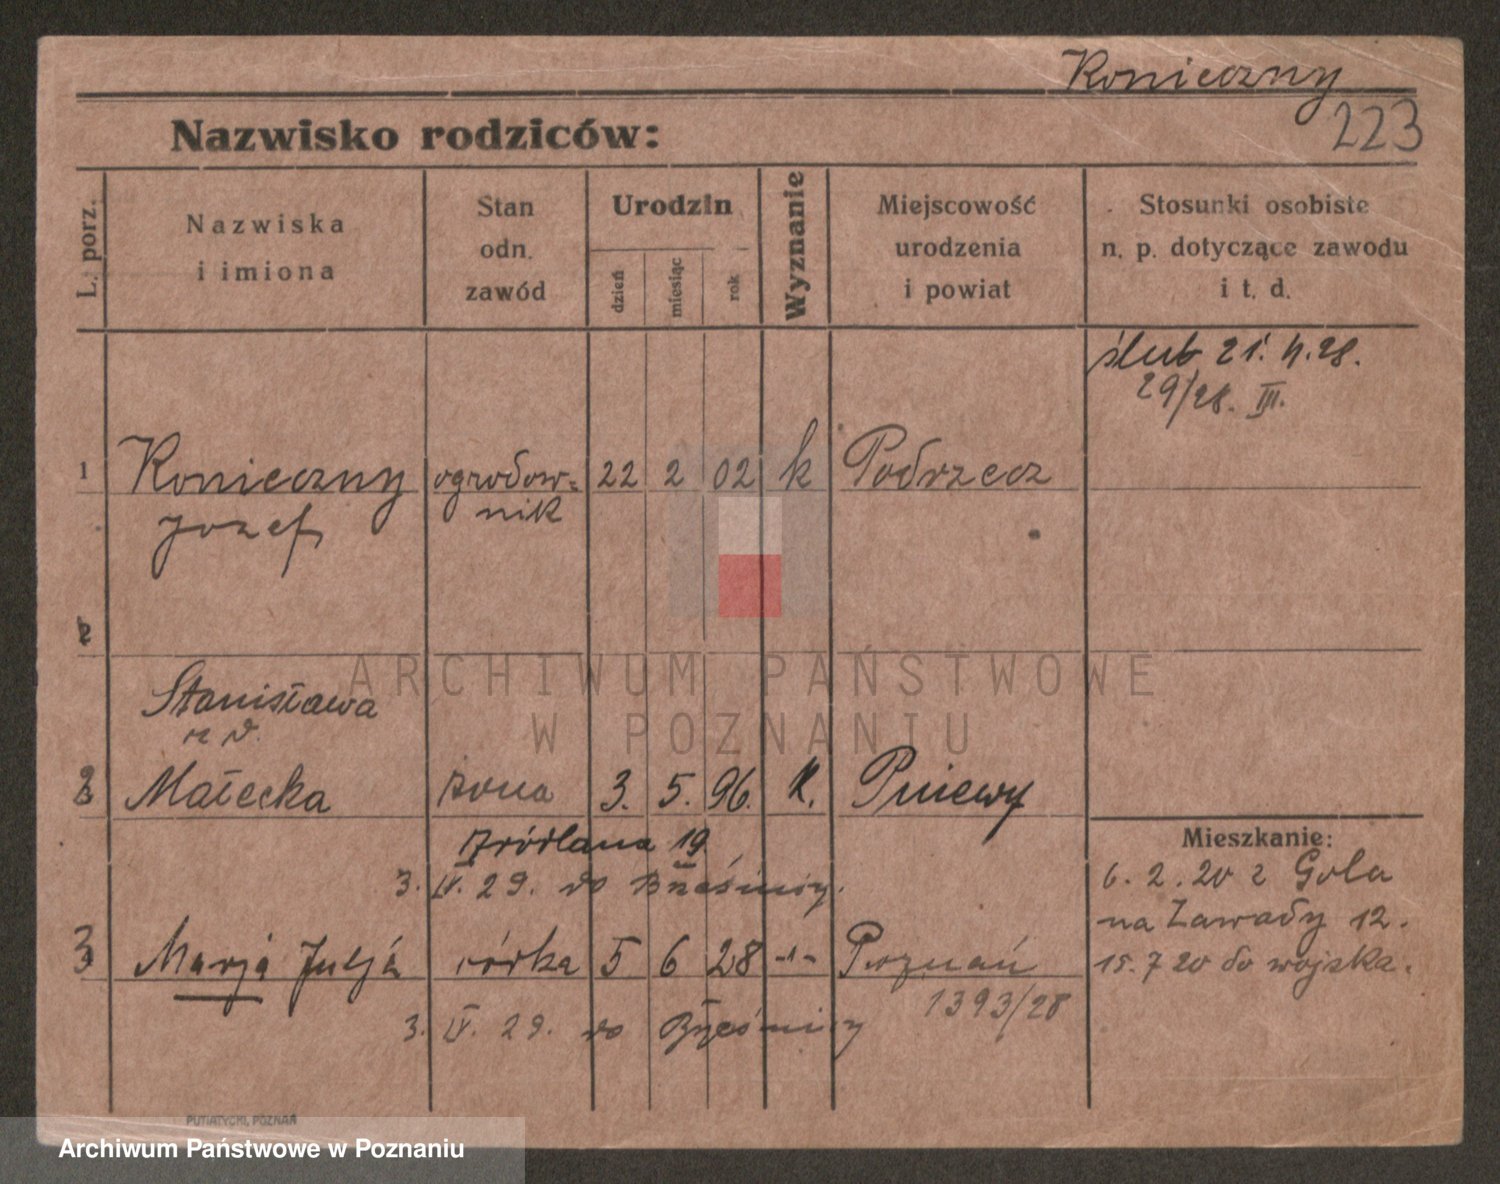 Konieczny
223
Nazwisko rodziców:
L. porz.
Nazwiska
i imiona
Stan
odn.
zawód
Urodzin
dzień
miesiąc
rok
Wyznanie
Miejscowość
urodzenia
i powiat
Stosunki osobiste
n. p. dotyczące zawodu
i t. d.
ślub 21. 4. 28.
29/28. III.
1 Konieczny ogrodow- 22 2 02 k Podrzecz
Jozef nik
2
Stanisława
Małecka żona 3. 5. 96. k. Pniewy
Źródlana 19
3. IV. 29. do
Mieszkanie:
6. 2. 20 z Gola
na Zawady 12.
15. 7 20 do wojska.
3 Marja Julja córka 5 6 28 -"- Poznań
1393/28
3. IV. 29. do
PUTIATYCKI, POZNAŃ
ARCHIWUM PAŃSTWOWE
W POZNANIU
Archiwum Państwowe w Poznaniu